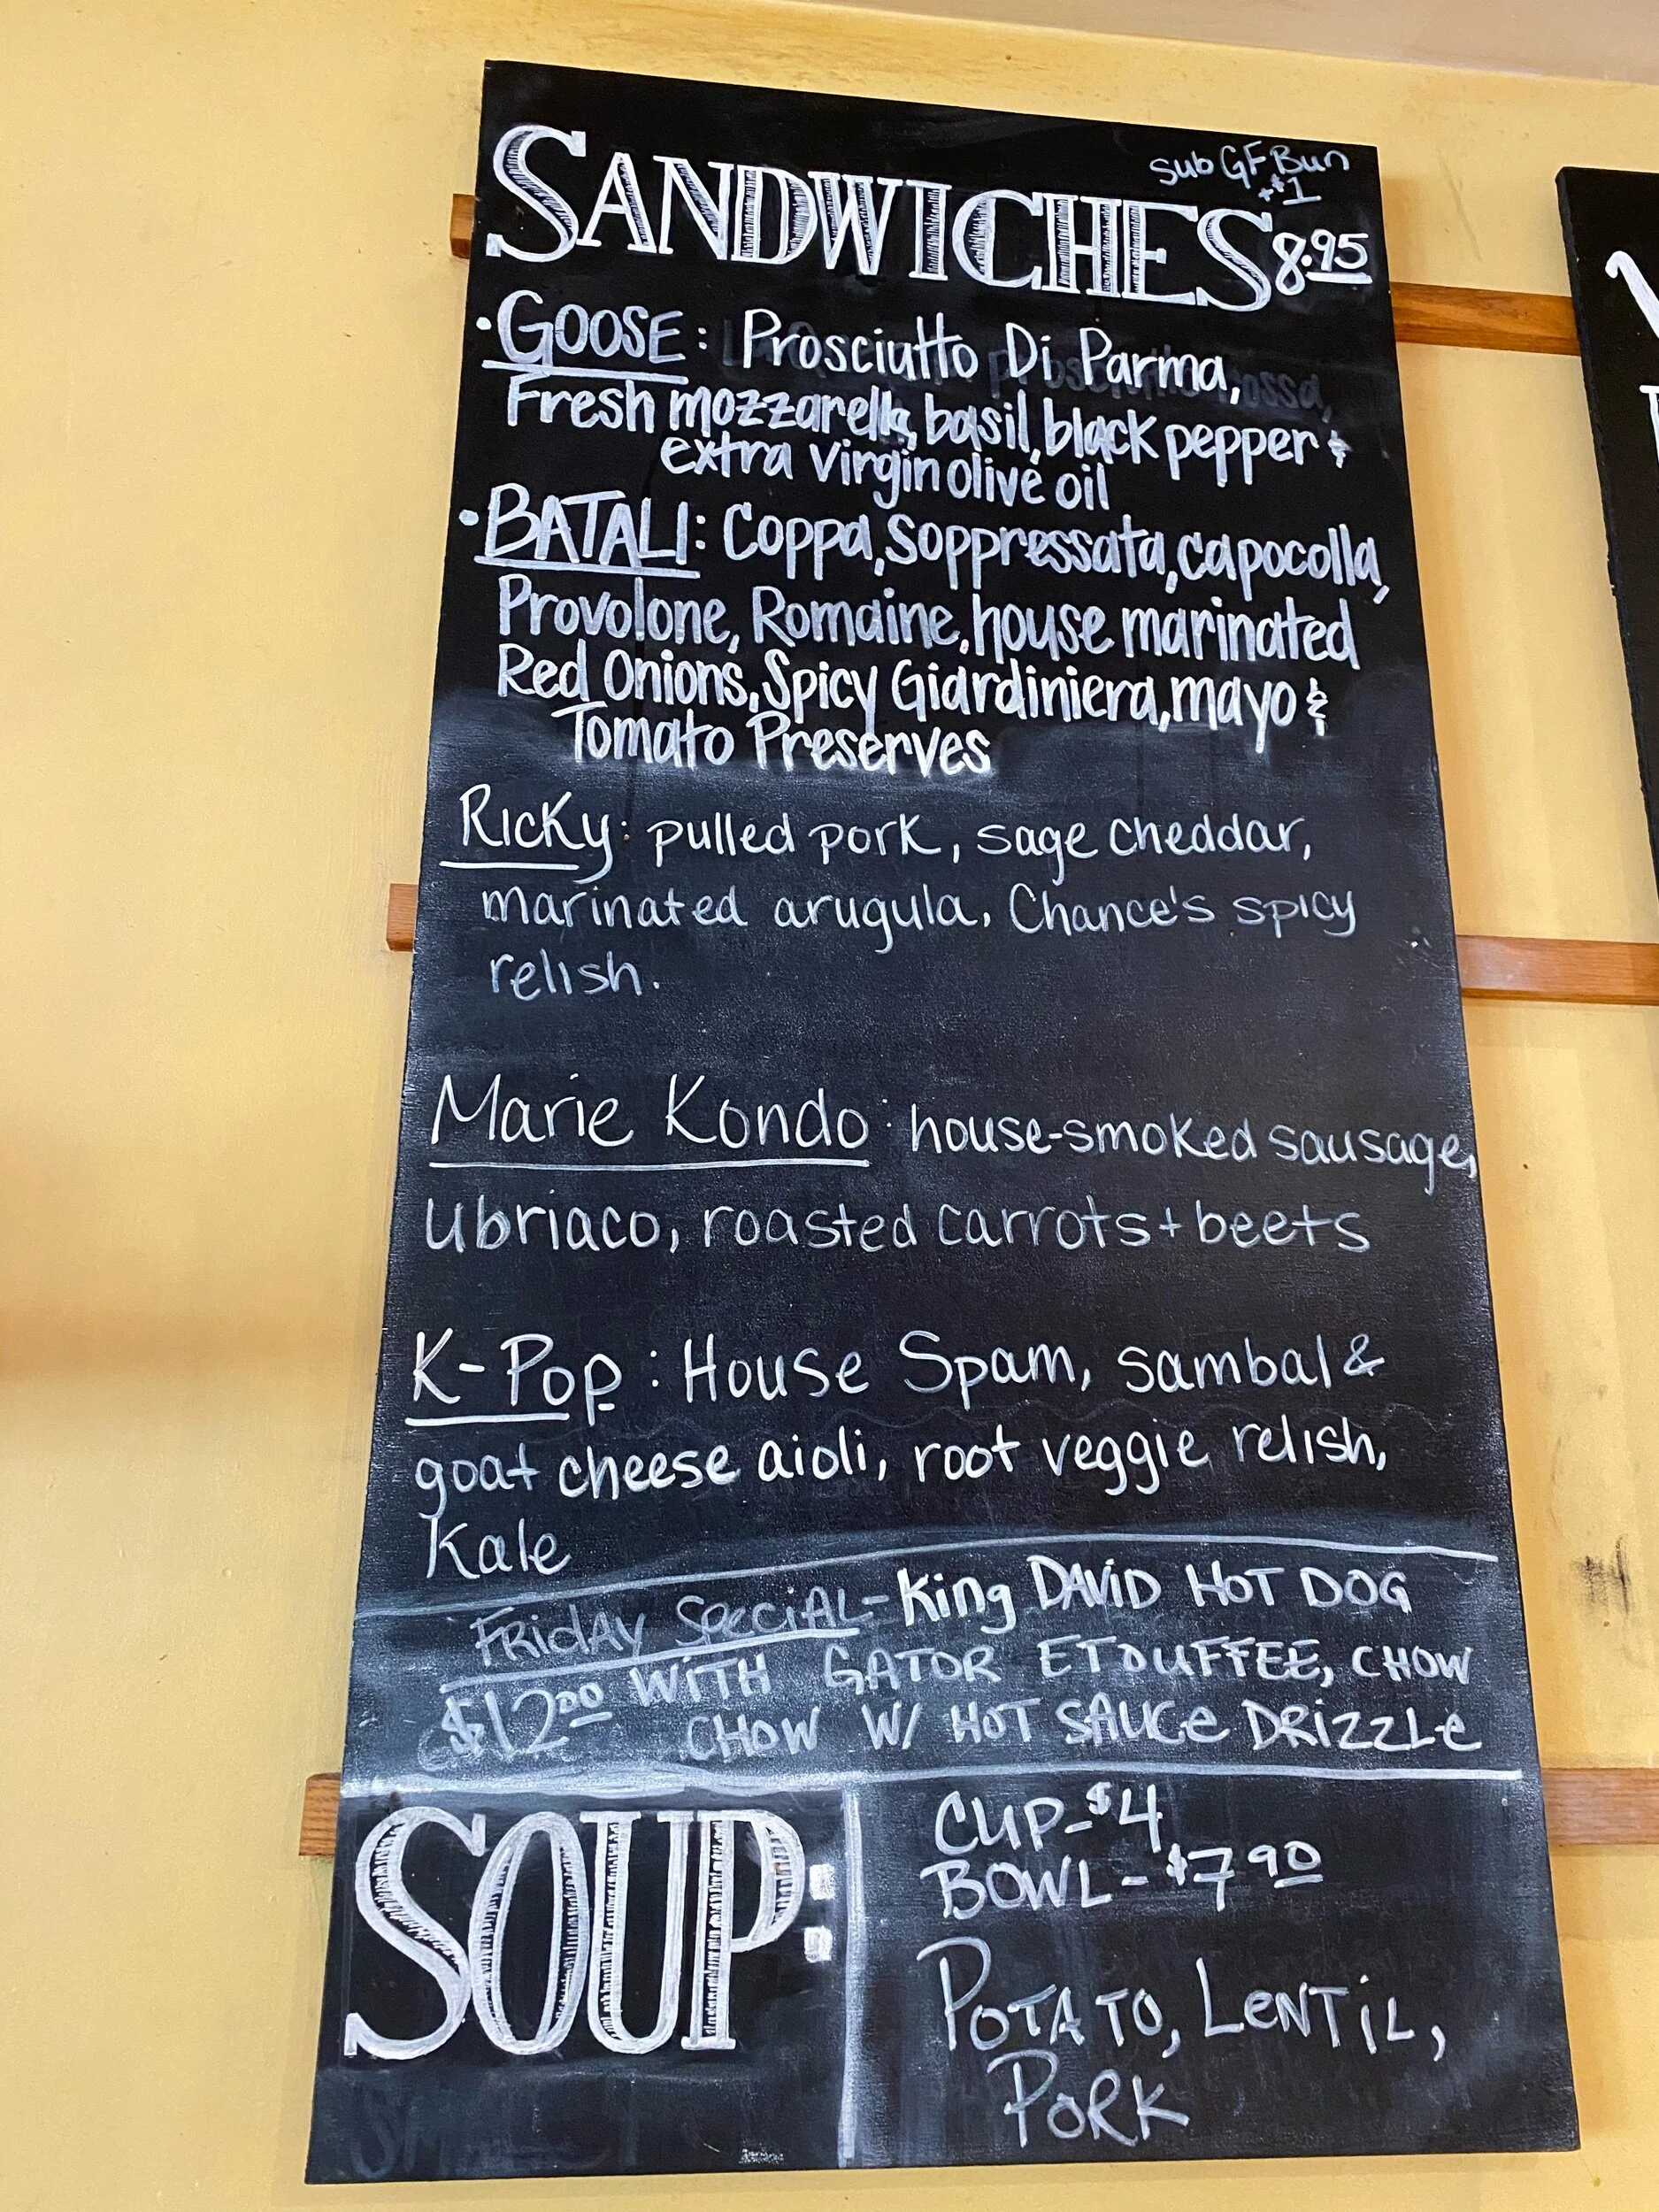 Sub GF Bun
+$1
SANDWICHES 8.95
· GOOSE: Prosciutto Di Parma,
Fresh mozzarella, basil, black pepper &
extra virgin olive oil
· BATALI: Coppa, Soppressata, capocolla,
Provolone, Romaine, house marinated
Red Onions, Spicy Giardiniera, mayo &
Tomato Preserves
Ricky: pulled pork, sage cheddar,
marinated arugula, Chance's spicy
relish.
Marie Kondo: house-smoked sausage,
ubriaco, roasted carrots + beets
K-Pop: House Spam, sambal &
goat cheese aioli, root veggie relish,
Kale
FRIDAY SPECIAL - King DAVID HOT DOG
$12.00 WITH GATOR ETOUFFEE, CHOW
CHOW W/ HOT SAUCE DRIZZLE
SOUP:
CUP - $4
BOWL - $7.90
POTATO, LENTIL,
PORK